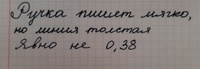 Ручка пишет мягко,
но линия толстая
Явно не 0,38